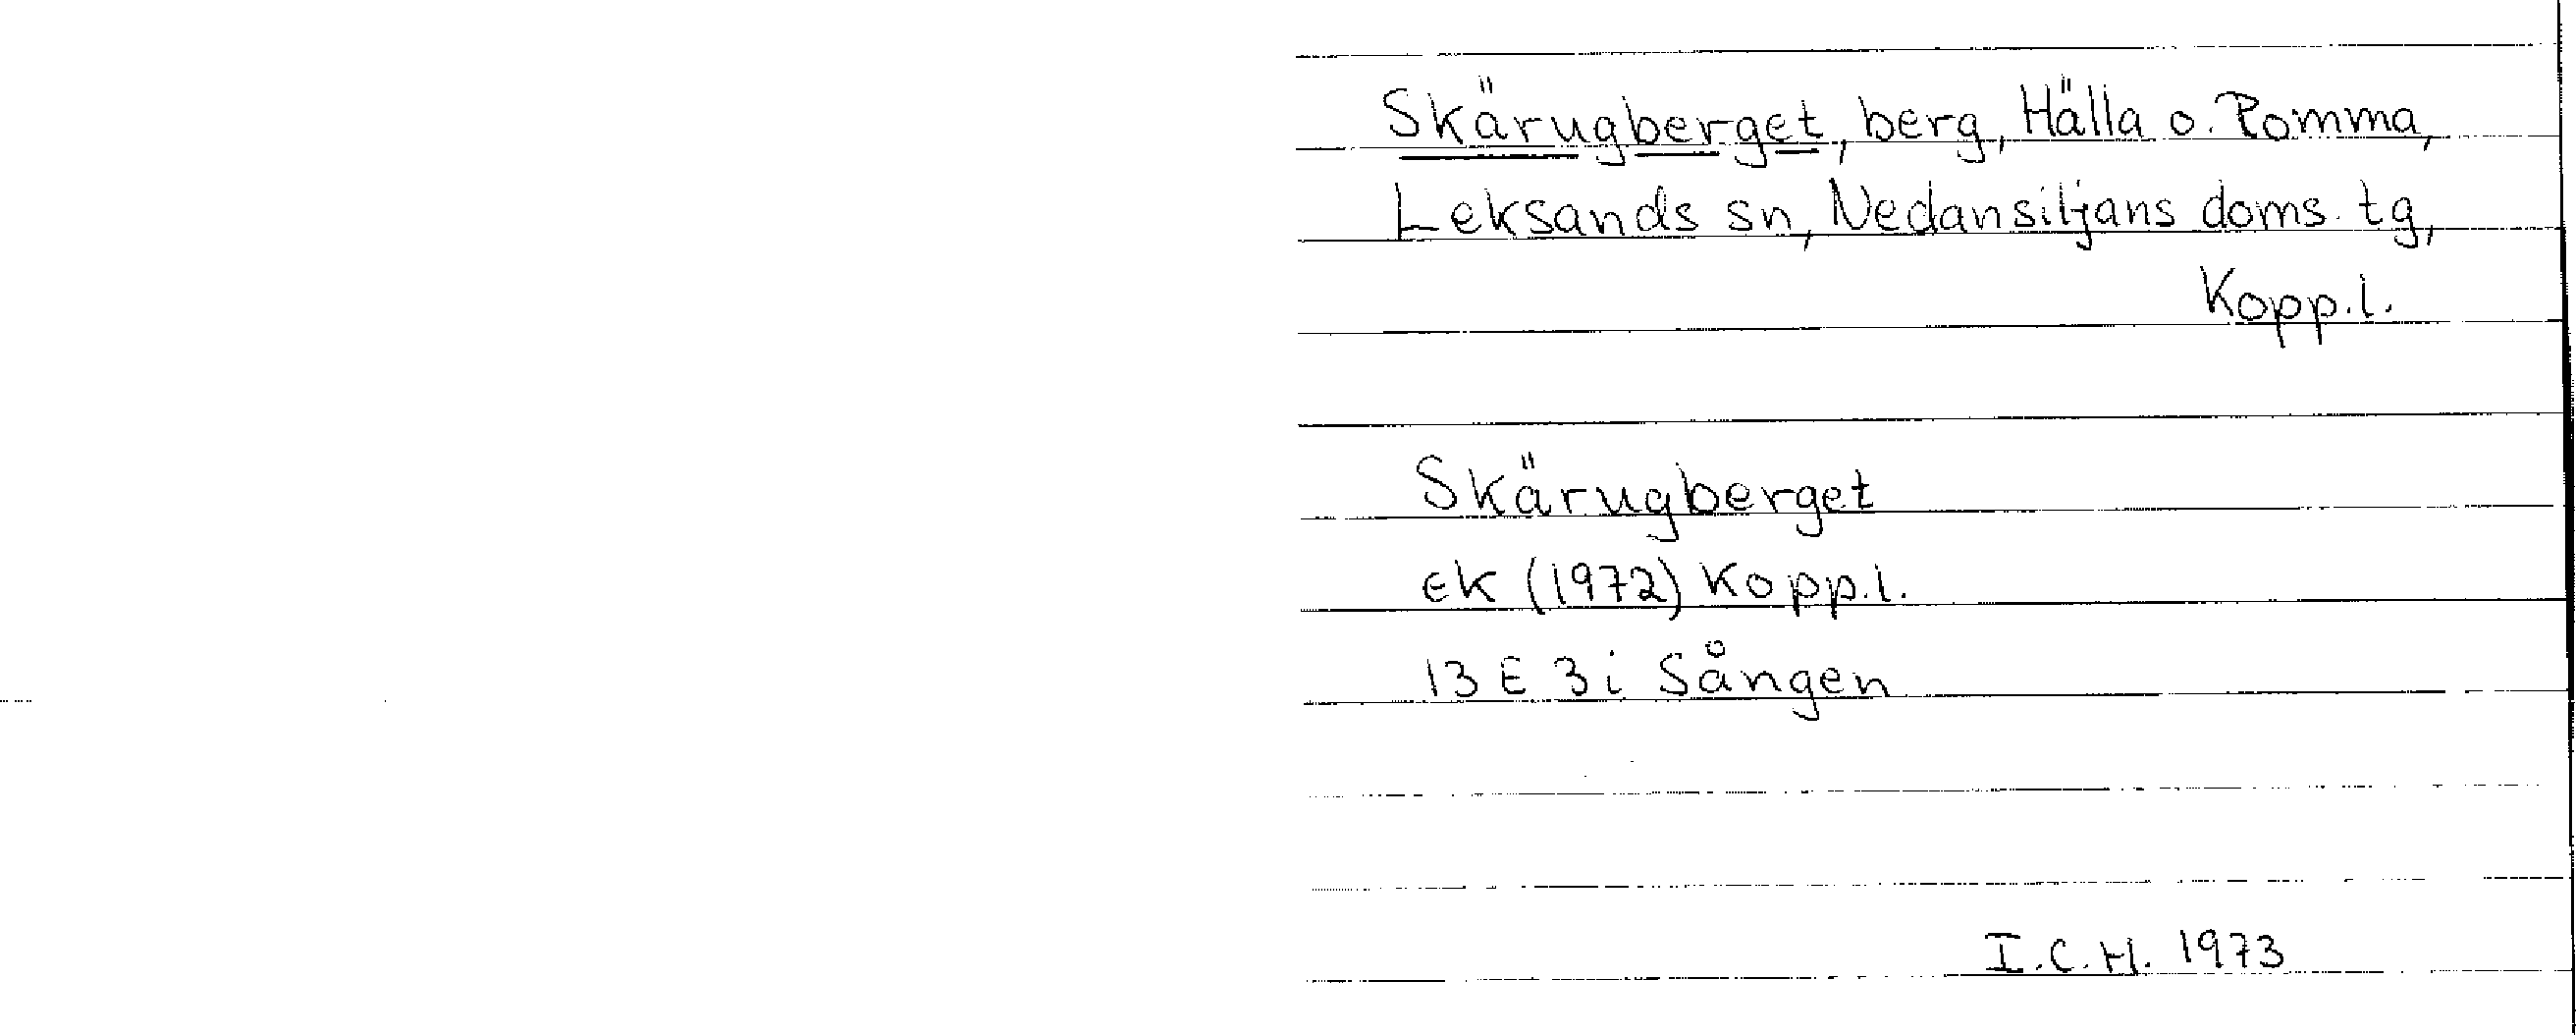 Skärugberget, berg, Hälla o. Romma,
Leksands sn, Nedansiljans doms. tg,
Kopp.l.
Skärugberget
EK (1972) Kopp.l.
13 E 3i Sången
I.C.H. 1973